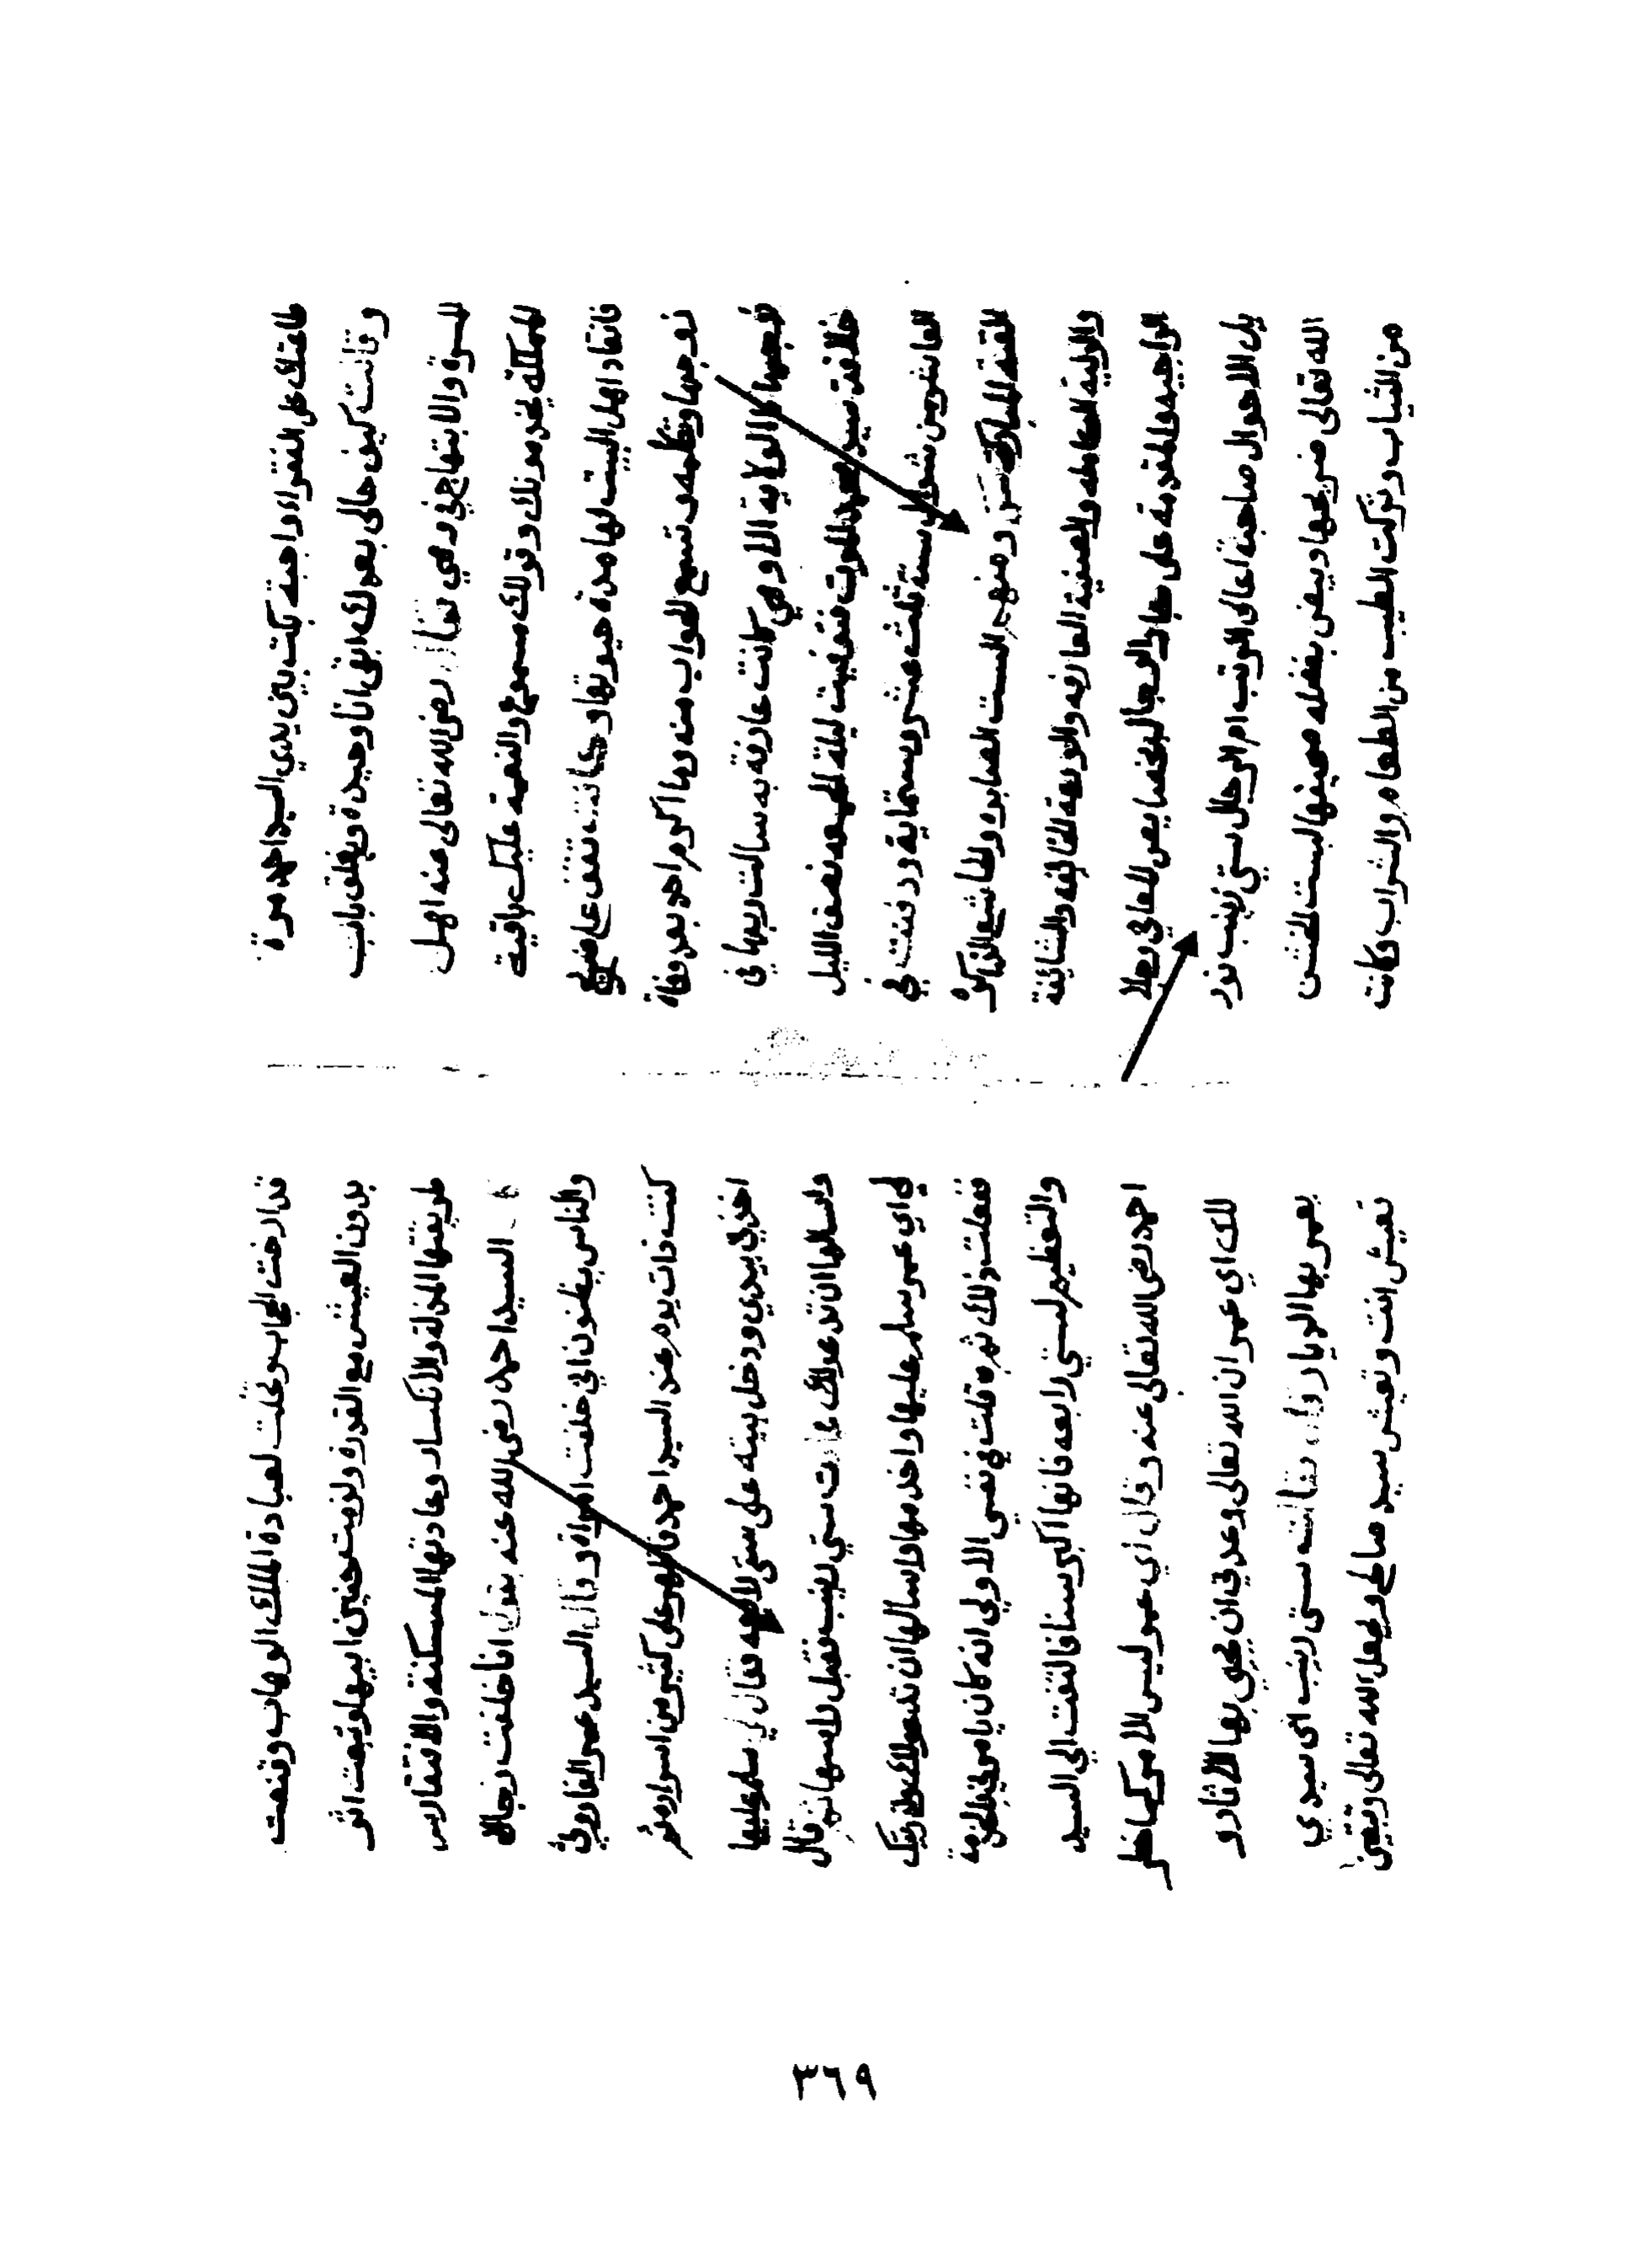 طاعتك على الفقراء واجبة بكت بين يدي السيد احمد مرة
وقالت كيف حالي بعدك ابقى انا وحيدة ويغلق باب
المسرة والابتهاج في وجهي فقال رضي الله تعالى عنه اهل
المملكة يخدمونك وقولك مسموع والنعمة عليك باقية
فانقاد اهل البيت لها مدة حيوتها وكانت تقف على ضريح
زوجها وتكلمه وتسمع الجواب منه وما اكرم احد بعد وفاة
الولاية الا وهي كانت عارفة به سالت ربها في
فتوفيت ليلة الجمعه نصف الليل
العاشر من شوال سنة ثلث عشر وستماية ودفنت في
القبة المباركة ومنهم الست الصابره والخاشع الذاكره
والولية الكامله والصفية العارفه والورعة الخائفه والشائقة
الواجبه والمقدمة على جباه الرجال بخصايص المعاني وجلا
يل الاحوال صاحبة اعالي الرتب ام الرجال ستي زينب نور
الله تعالى ضريحها وبيض بفضله صحيفتها لبست الخشن
من الثياب وتركت الطيب من الطعام والشراب وكانت
قد ارخت الحجاب وتخلت لعبادة الملك الوهاب وقنعت
بدون العيش مع القدرة ولزمت حنين ابيها وتبعت اثر
طريقتها المذلة والانكسار وعادتها المسكنة والافتقار
السيد احمد رضي الله عنه يقول انا خلفت رجالا
والناس يظنون اني خلفت امراة وقال السيد عمر الفاروثي
كنت ذات يوم عند السيد احمد على كثير من اسراره ثم
اخذ بيدي ودخل بيته على ستي رابعه فقال لي سلم عليها
واسالها ان تدعو لك ستي زينب فقبل راسها ثم قال
لي اي عمر سلم عليها واخدمها واسالها ان تدعو لك
ففعلت ذلك ثم قلت في نفسي الاولى انه كان يامرني بالخدمة
والتعظيم لستي رابعه فانها اكبر سنا فالتفت الي السيد
احمد رضي الله تعالى عنه وقال اي عمر ليس الامر كما خطر
لك اي عمر ان الله تعالى وعدني ان يحيي بها الاثار و
يعمر بها الديار وان ستي زينب اي سيدي
تعيش انت وتعيش سيد صالح ويفعل الله تعالى
٣٦٩